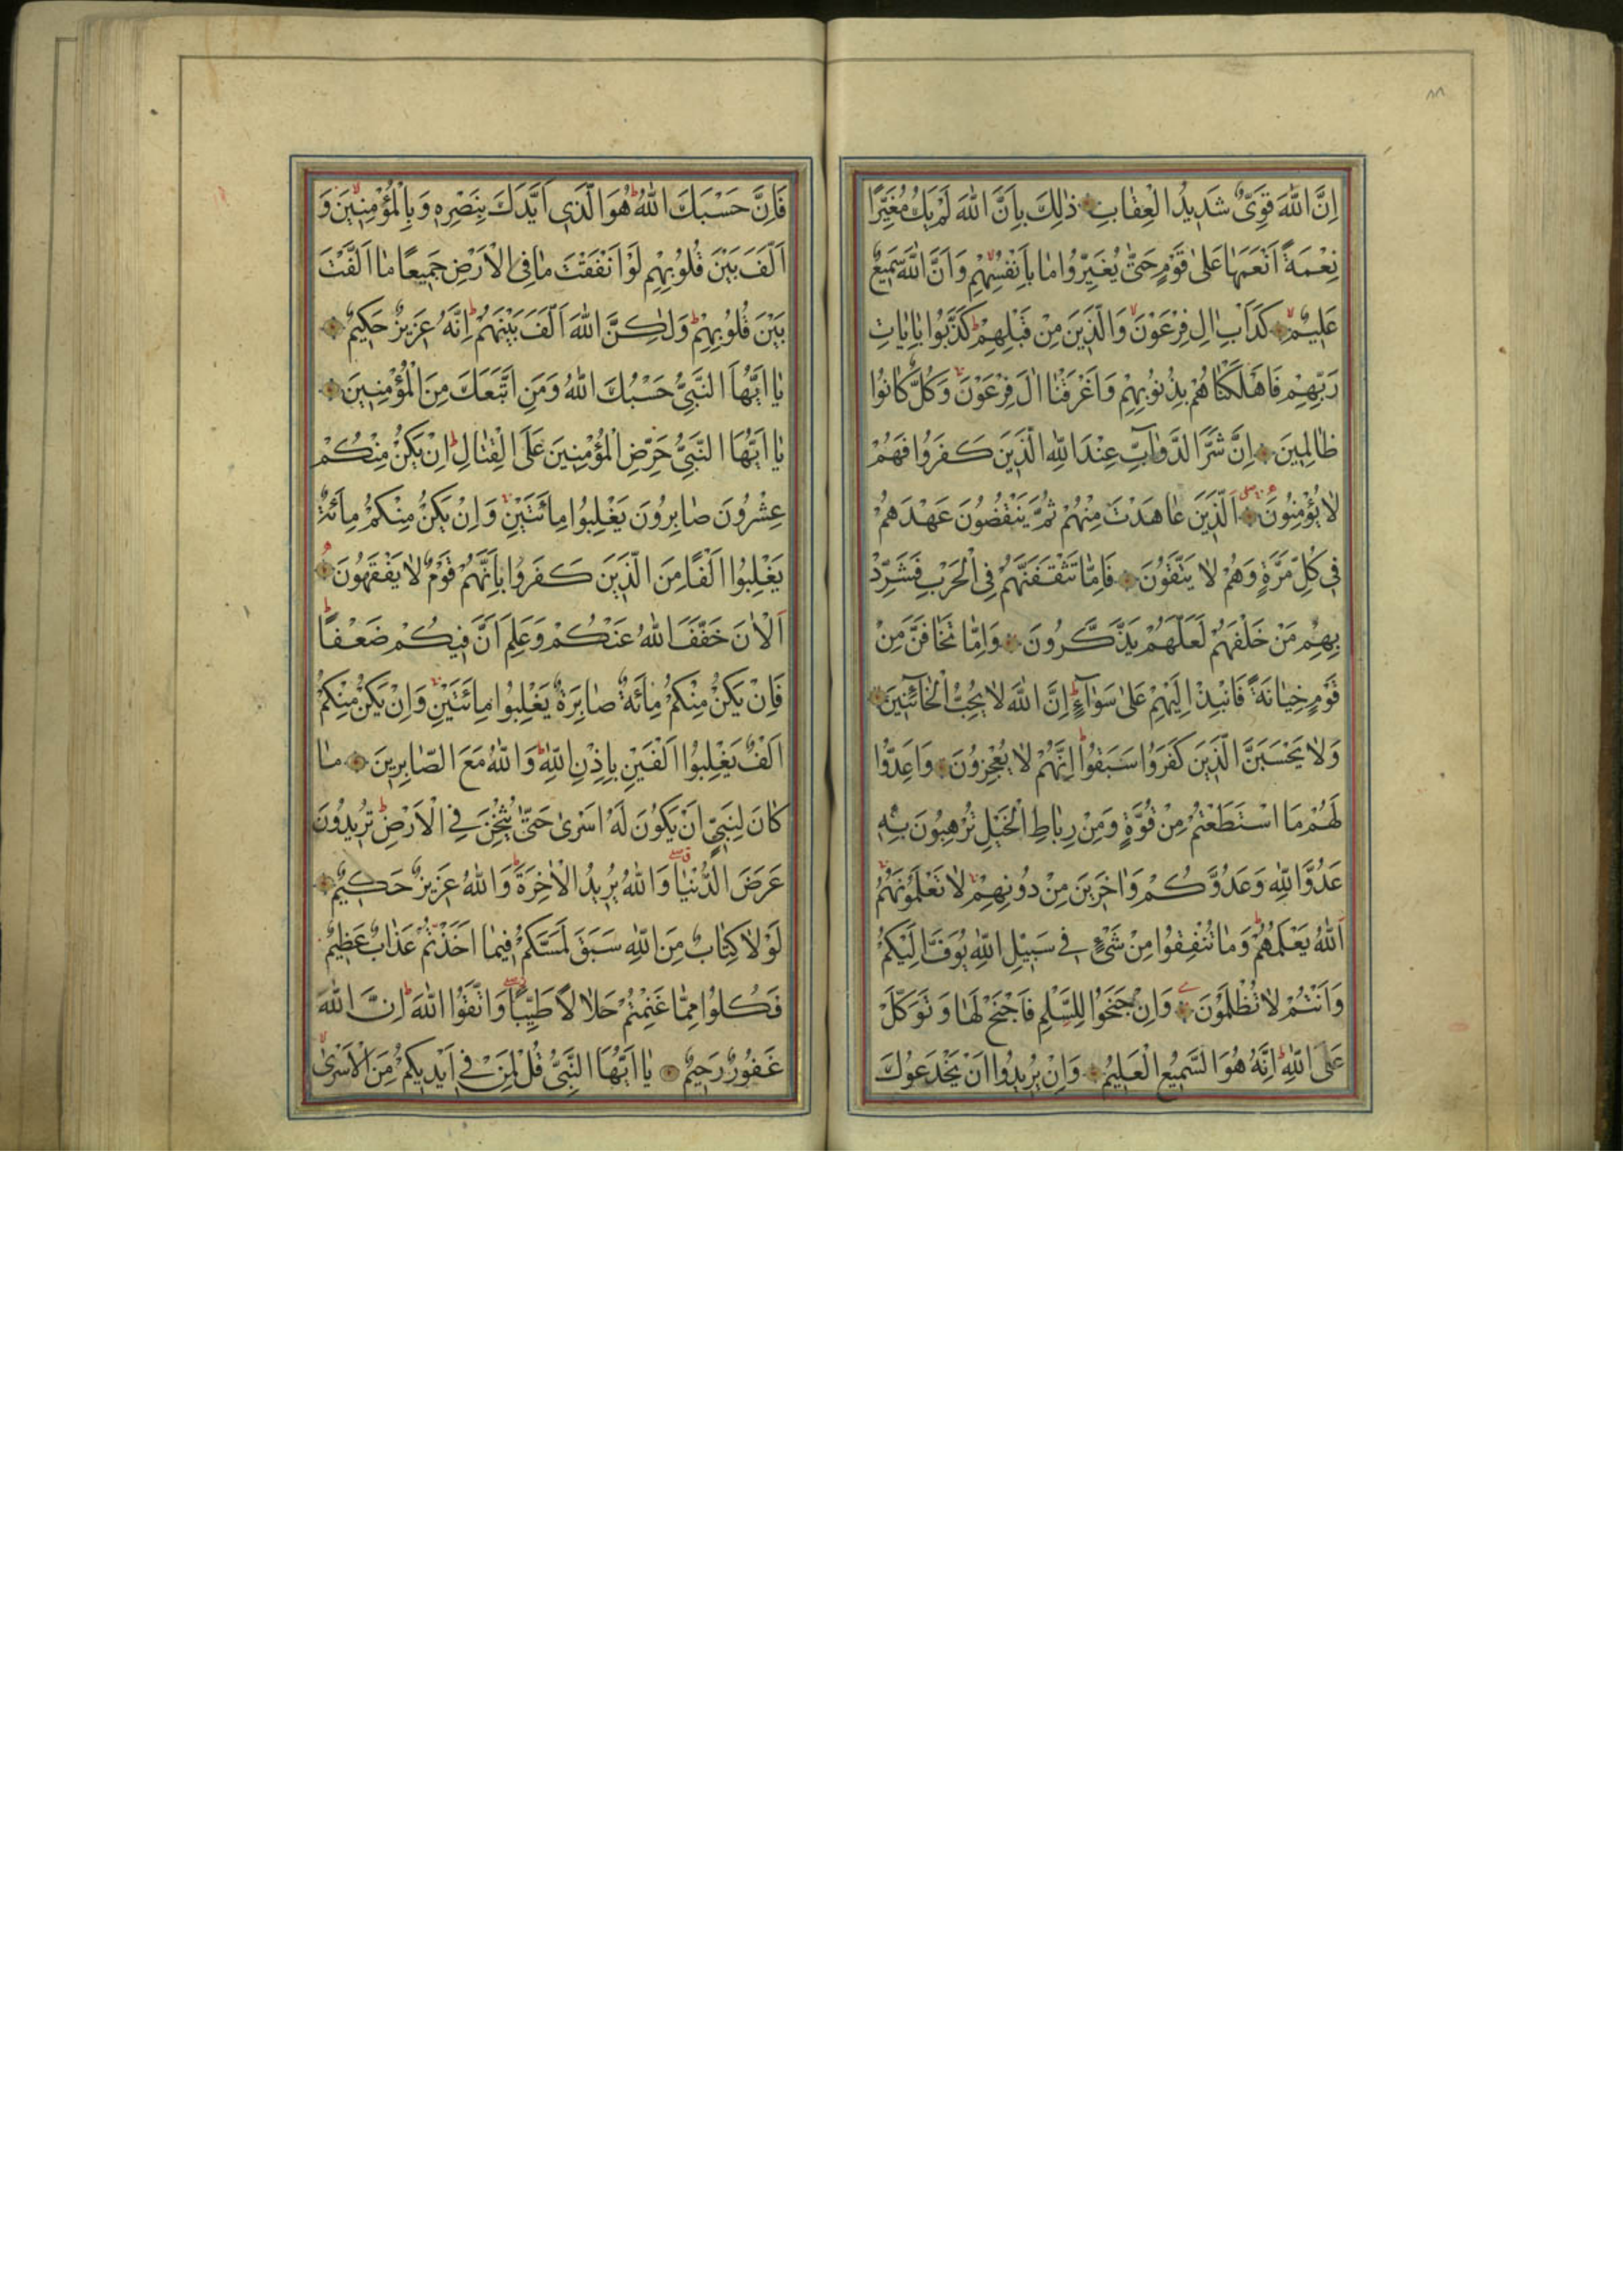 ٨٨
اِنَّ اللّٰهَ قَوِىٌّ شَدِيدُ الْعِقٰابِ ذٰلِكَ بِاَنَّ اللّٰهَ لَمْ يَكُ مُغَيِّرًا
نِعْمَةً اَنْعَمَهٰا عَلىٰ قَوْمٍ حَتّٰى يُغَيِّرُوا مٰا بِاَنْفُسِهِمْ وَاَنَّ اللّٰهَ سَمِيعٌ
عَلِيمٌ كَدَاْبِ اٰلِ فِرْعَوْنَ وَالَّذِينَ مِنْ قَبْلِهِمْ كَذَّبُوا بِاٰيٰاتِ
رَبِّهِمْ فَاَهْلَكْنٰاهُمْ بِذُنُوبِهِمْ وَاَغْرَقْنٰا اٰلَ فِرْعَوْنَ وَكُلٌّ كٰانُوا
ظٰالِمِينَ اِنَّ شَرَّ الدَّوٰآبِّ عِنْدَ اللّٰهِ الَّذِينَ كَفَرُوا فَهُمْ
لٰا يُؤْمِنُونَ اَلَّذِينَ عٰاهَدْتَ مِنْهُمْ ثُمَّ يَنْقُضُونَ عَهْدَهُمْ
فِى كُلِّ مَرَّةٍ وَهُمْ لٰا يَتَّقُونَ فَاِمّٰا تَثْقَفَنَّهُمْ فِى الْحَرْبِ فَشَرِّدْ
بِهِمْ مَنْ خَلْفَهُمْ لَعَلَّهُمْ يَذَّكَّرُونَ وَاِمّٰا تَخٰافَنَّ مِنْ
قَوْمٍ خِيٰانَةً فَانْبِذْ اِلَيْهِمْ عَلىٰ سَوٰآءٍ اِنَّ اللّٰهَ لٰا يُحِبُّ الْخٰآئِنِينَ
وَلٰا يَحْسَبَنَّ الَّذِينَ كَفَرُوا سَبَقُوا اِنَّهُمْ لٰا يُعْجِزُونَ وَاَعِدُّوا
لَهُمْ مَا اسْتَطَعْتُمْ مِنْ قُوَّةٍ وَمِنْ رِبٰاطِ الْخَيْلِ تُرْهِبُونَ بِهِ
عَدُوَّ اللّٰهِ وَعَدُوَّكُمْ وَاٰخَرِينَ مِنْ دُونِهِمْ لٰا تَعْلَمُونَهُمُ
اَللّٰهُ يَعْلَمُهُمْ وَمٰا تُنْفِقُوا مِنْ شَىْءٍ فِى سَبِيلِ اللّٰهِ يُوَفَّ اِلَيْكُمْ
وَاَنْتُمْ لٰا تُظْلَمُونَ وَاِنْ جَنَحُوا لِلسَّلْمِ فَاجْنَحْ لَهٰا وَتَوَكَّلْ
عَلَى اللّٰهِ اِنَّهُ هُوَ السَّمِيعُ الْعَلِيمُ وَاِنْ يُرِيدُوا اَنْ يَخْدَعُوكَ
فَاِنَّ حَسْبَكَ اللّٰهُ هُوَ الَّذِى اَيَّدَكَ بِنَصْرِهِ وَبِالْمُؤْمِنِينَ وَ
اَلَّفَ بَيْنَ قُلُوبِهِمْ لَوْ اَنْفَقْتَ مٰا فِى الْاَرْضِ جَمِيعًا مٰا اَلَّفْتَ
بَيْنَ قُلُوبِهِمْ وَلٰكِنَّ اللّٰهَ اَلَّفَ بَيْنَهُمْ اِنَّهُ عَزِيزٌ حَكِيمٌ
يٰا اَيُّهَا النَّبِىُّ حَسْبُكَ اللّٰهُ وَمَنِ اتَّبَعَكَ مِنَ الْمُؤْمِنِينَ
يٰا اَيُّهَا النَّبِىُّ حَرِّضِ الْمُؤْمِنِينَ عَلَى الْقِتٰالِ اِنْ يَكُنْ مِنْكُمْ
عِشْرُونَ صٰابِرُونَ يَغْلِبُوا مِائَتَيْنِ وَاِنْ يَكُنْ مِنْكُمْ مِائَةٌ
يَغْلِبُوا اَلْفًا مِنَ الَّذِينَ كَفَرُوا بِاَنَّهُمْ قَوْمٌ لٰا يَفْقَهُونَ
اَلْاٰنَ خَفَّفَ اللّٰهُ عَنْكُمْ وَعَلِمَ اَنَّ فِيكُمْ ضَعْفًا
فَاِنْ يَكُنْ مِنْكُمْ مِائَةٌ صٰابِرَةٌ يَغْلِبُوا مِائَتَيْنِ وَاِنْ يَكُنْ مِنْكُمْ
اَلْفٌ يَغْلِبُوا اَلْفَيْنِ بِاِذْنِ اللّٰهِ وَاللّٰهُ مَعَ الصّٰابِرِينَ مٰا
كٰانَ لِنَبِىٍّ اَنْ يَكُونَ لَهُ اَسْرىٰ حَتّٰى يُثْخِنَ فِى الْاَرْضِ تُرِيدُونَ
عَرَضَ الدُّنْيٰا وَاللّٰهُ يُرِيدُ الْاٰخِرَةَ وَاللّٰهُ عَزِيزٌ حَكِيمٌ
لَوْلٰا كِتٰابٌ مِنَ اللّٰهِ سَبَقَ لَمَسَّكُمْ فِيمٰا اَخَذْتُمْ عَذٰابٌ عَظِيمٌ
فَكُلُوا مِمّٰا غَنِمْتُمْ حَلٰالًا طَيِّبًا وَاتَّقُوا اللّٰهَ اِنَّ اللّٰهَ
غَفُورٌ رَحِيمٌ يٰا اَيُّهَا النَّبِىُّ قُلْ لِمَنْ فِى اَيْدِيكُمْ مِنَ الْاَسْرىٰ